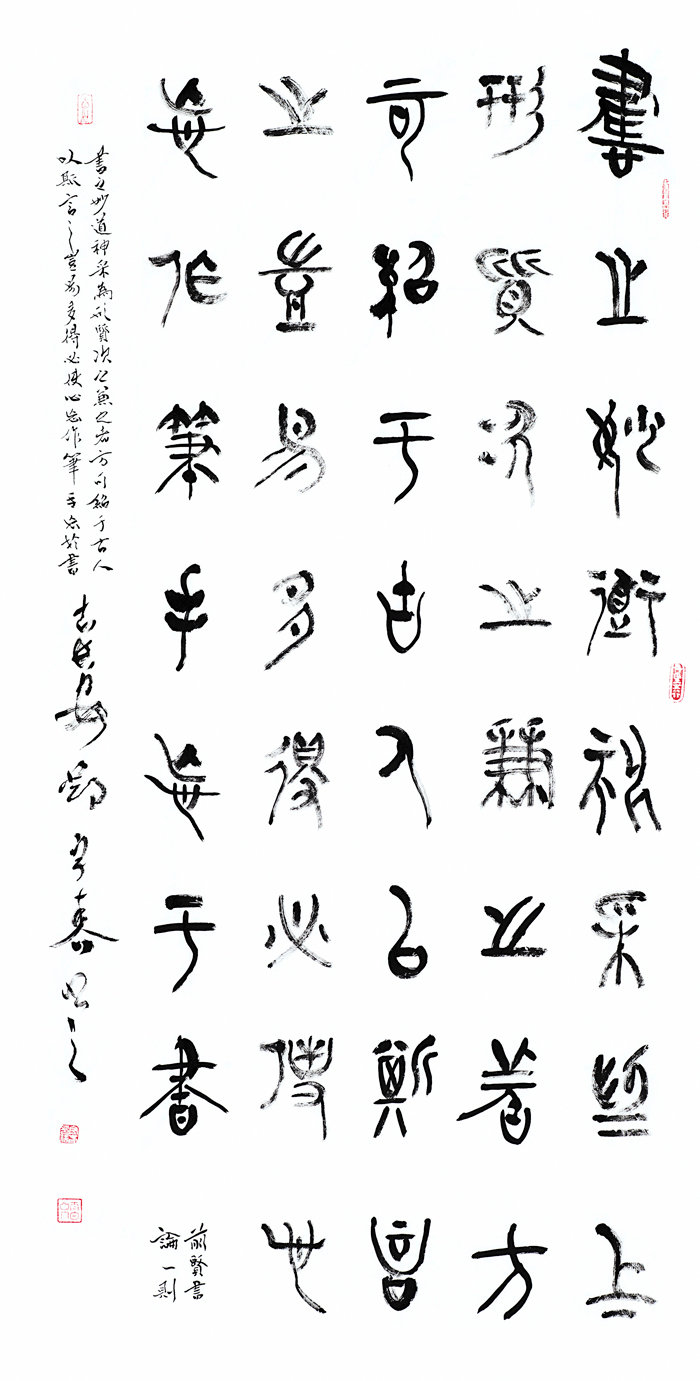 書之妙道神采為上
形質次之兼之者方
可紹于古人以斯言
之豈易多得必使心
忘作筆手忘于書
前賢書
論一則
書之妙道神采為形質次之兼之者方可紹于古人
以斯言之豈易多得必使心忘作筆手忘於書